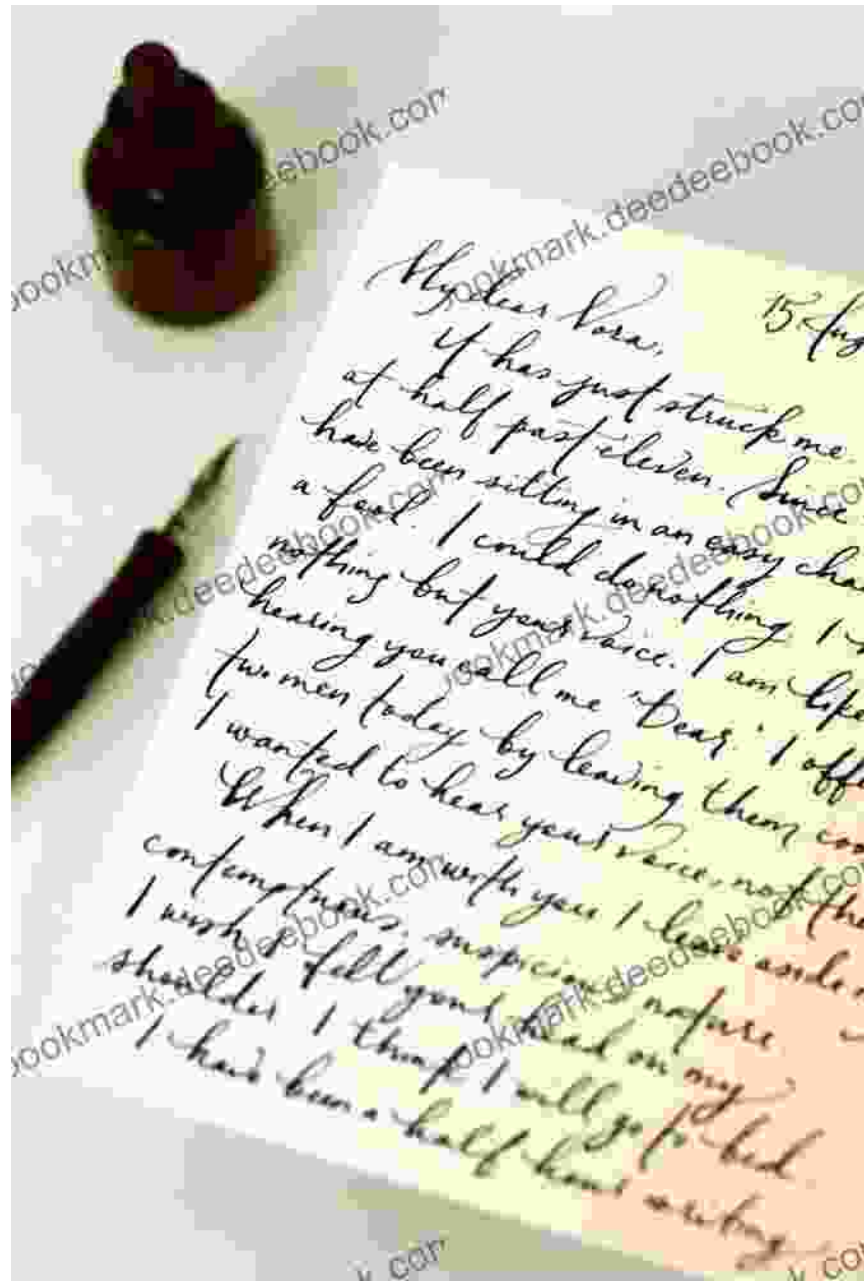 My dear Nora,
15 Aug
It has just struck me.
at half past eleven. Since
have been sitting in an easy chai
a fool. I could do nothing. I
nothing but your voice. I am like
hearing you call me 'Dear.' I offe
two men today by leaving them coo
I wanted to hear your voice, not the
When I am with you I leave aside
contemptuous, suspicious nature.
I wish I felt your head on my
shoulder. I think I will go to bed.
I have been a half-hour writing
bookmark.deedeebook.com